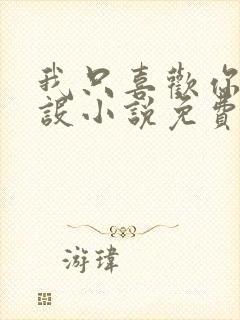 我只喜歡你
設小說免費
游瑋